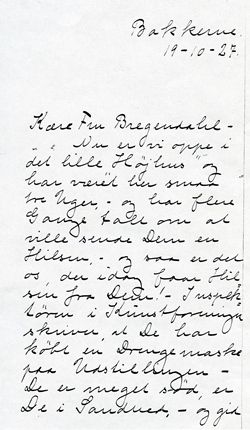 Bakkerne.
19-10-27.
Kære Fru Bregendahl-
„ „ Nu er vi oppe i
det lille Höjhus" og
har været her smaa
tre Uger, - og har flere
Gange talt om at
ville sende Dem en
Hilsen, - og saa er det
os, der idag faar Hil-
sen fra Dem! - Inspek-
tören i Kunstforeningen
skriver, at De har
köbt en Drengemaske
paa Udstillingen -
De er meget söd, er
De i Sandhed, - og gid